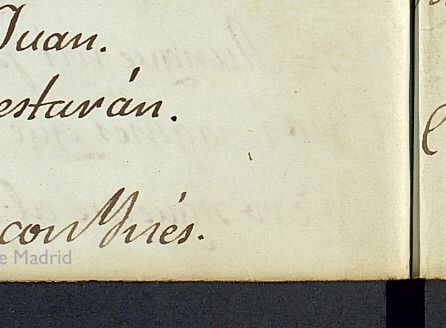 Juan.
estarán.
con Ynés.
e Madrid